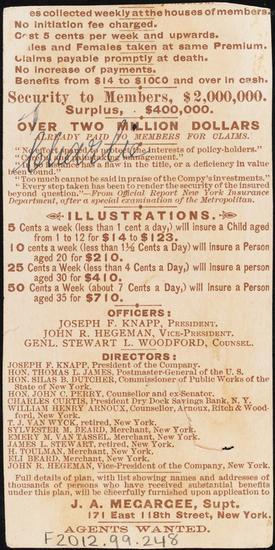 es collected weekly at the houses of members.
No initiation fee charged.
Cost 5 cents per week and upwards.
ales and Females taken at same Premium.
Claims payable promptly at death.
No increase of payments.
Benefits from $14 to $1000 and over in cash.
Security to Members, $2,000,000.
Surplus, - $400,000.
OVER TWO MILLION DOLLARS
ALREADY PAID TO MEMBERS FOR CLAIMS.
interests of policy-holders."
management."
has a flaw in the title, or a deficiency in value
been found."
"Too much cannot be said in praise of the Compy's investments."
"Every step taken has been to render the security of the insured
beyond question."—From Official Report New York Insurance
Department, after a special examination of the Metropolitan.
ILLUSTRATIONS.
5 Cents a week (less than 1 cent a day,) will insure a Child aged
from 1 to 12 for $14 to $123.
10 cents a week (less than 1½ Cents a Day) will insure a Person
aged 20 for $210.
25 Cents a Week (less than 4 Cents a Day,) will insure a person
aged 30 for $410.
50 Cents a Week (about 7 Cents a Day,) will insure a Person
aged 35 for $710.
OFFICERS:
JOSEPH F. KNAPP, PRESIDENT.
JOHN R. HEGEMAN, VICE-PRESIDENT.
GENL. STEWART L. WOODFORD, COUNSEL.
DIRECTORS:
JOSEPH F. KNAPP, President of the Company.
HON. THOMAS L. JAMES, Postmaster-General of the U. S.
HON. SILAS B. DUTCHER, Commissioner of Public Works of the
State of New York.
HON. JOHN C. PERRY, Counsellor and ex-Senator.
CHARLES CURTIS, President Dry Dock Savings Bank, N. Y.
WILLIAM HENRY ARNOUX, Counsellor, Arnoux, Ritch & Wood-
ford, New York.
T. J. VAN WYCK, retired, New York.
SYLVESTER M. BEARD, Merchant, New York.
EMERY M. VAN TASSEL, Merchant, New York.
JAMES L. STEWART, retired, New York.
H. TOULMAN, Merchant, New York.
ELI BEARD, Merchant, New York.
JOHN R. HEGEMAN, Vice-President of the Company, New York.
Full details of plan, with list showing names and addresses of
thousands of persons who have received substantial benefits
under this plan, will be cheerfully furnished upon application to
J. A. MEGARGEE, Supt.
171 East 118th Street, New York.
AGENTS WANTED.
F2012.99.248